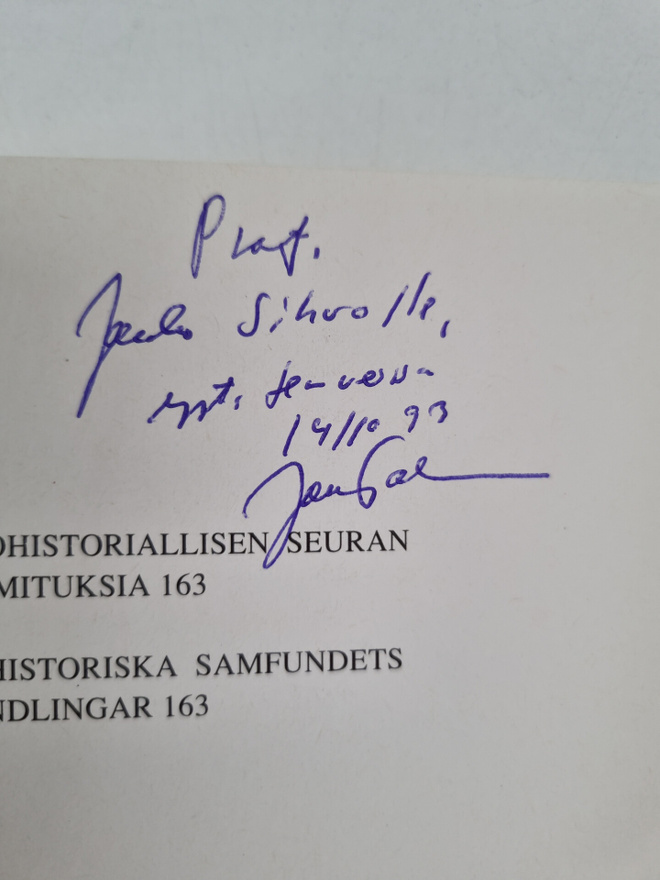 Prof.
Jouko Sihvolle,
syst. terveisin
14/10 93
OHISTORIALLISEN SEURAN
MITUKSIA 163
HISTORISKA SAMFUNDETS
NDLINGAR 163